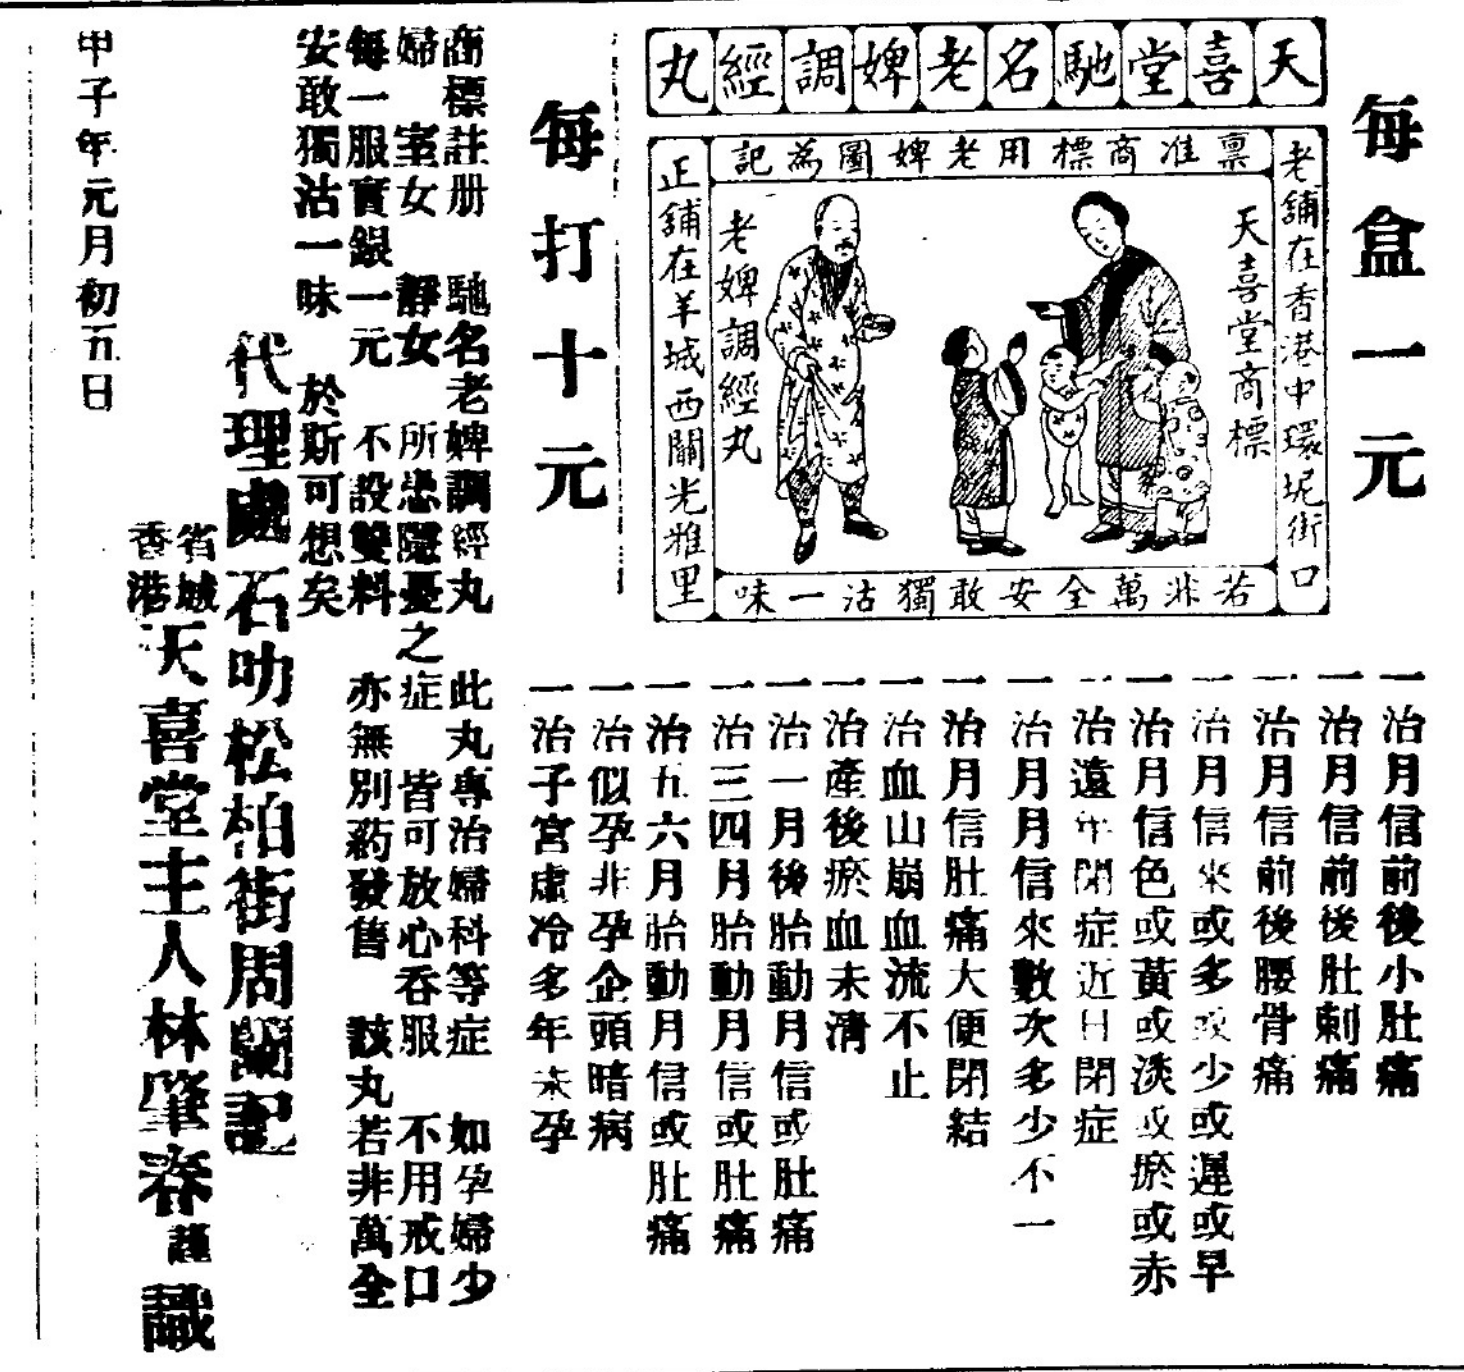 每盒一元
天喜堂馳名老婢調經丸
稟准商標用老婢圖為記
老舖在香港中環坭街口
天喜堂商標
老婢調經丸
正舖在羊城西關光雅里
若非萬全安敢獨沽一味
每打十元
一治月信前後小肚痛
一治月信前後肚刺痛
一治月信前後腰骨痛
一治月信來或多或少或遲或早
一治月信色或黃或淡或瘀或赤
一治遠年閉症近日閉症
一治月月信來數次多少不一
一治月信肚痛大便閉結
一治血山崩血流不止
一治產後瘀血未清
一治一月後胎動月信或肚痛
一治三四月胎動月信或肚痛
一治五六月胎動月信或肚痛
一治似孕非孕企頭暗病
一治子宮虛冷多年未孕
商標註册 馳名老婢調經丸 此丸專治婦科等症 如孕婦少
婦 室女 靜女 所患隱憂之症 皆可放心吞服 不用戒口
每一服實銀一元 不設雙料 亦無別葯發售 該丸若非萬全
安敢獨沽一味 於斯可想矣
代理處石叻松柏街周蘭記
省城
香港
天喜堂主人林肇春謹識
甲子年元月初五日